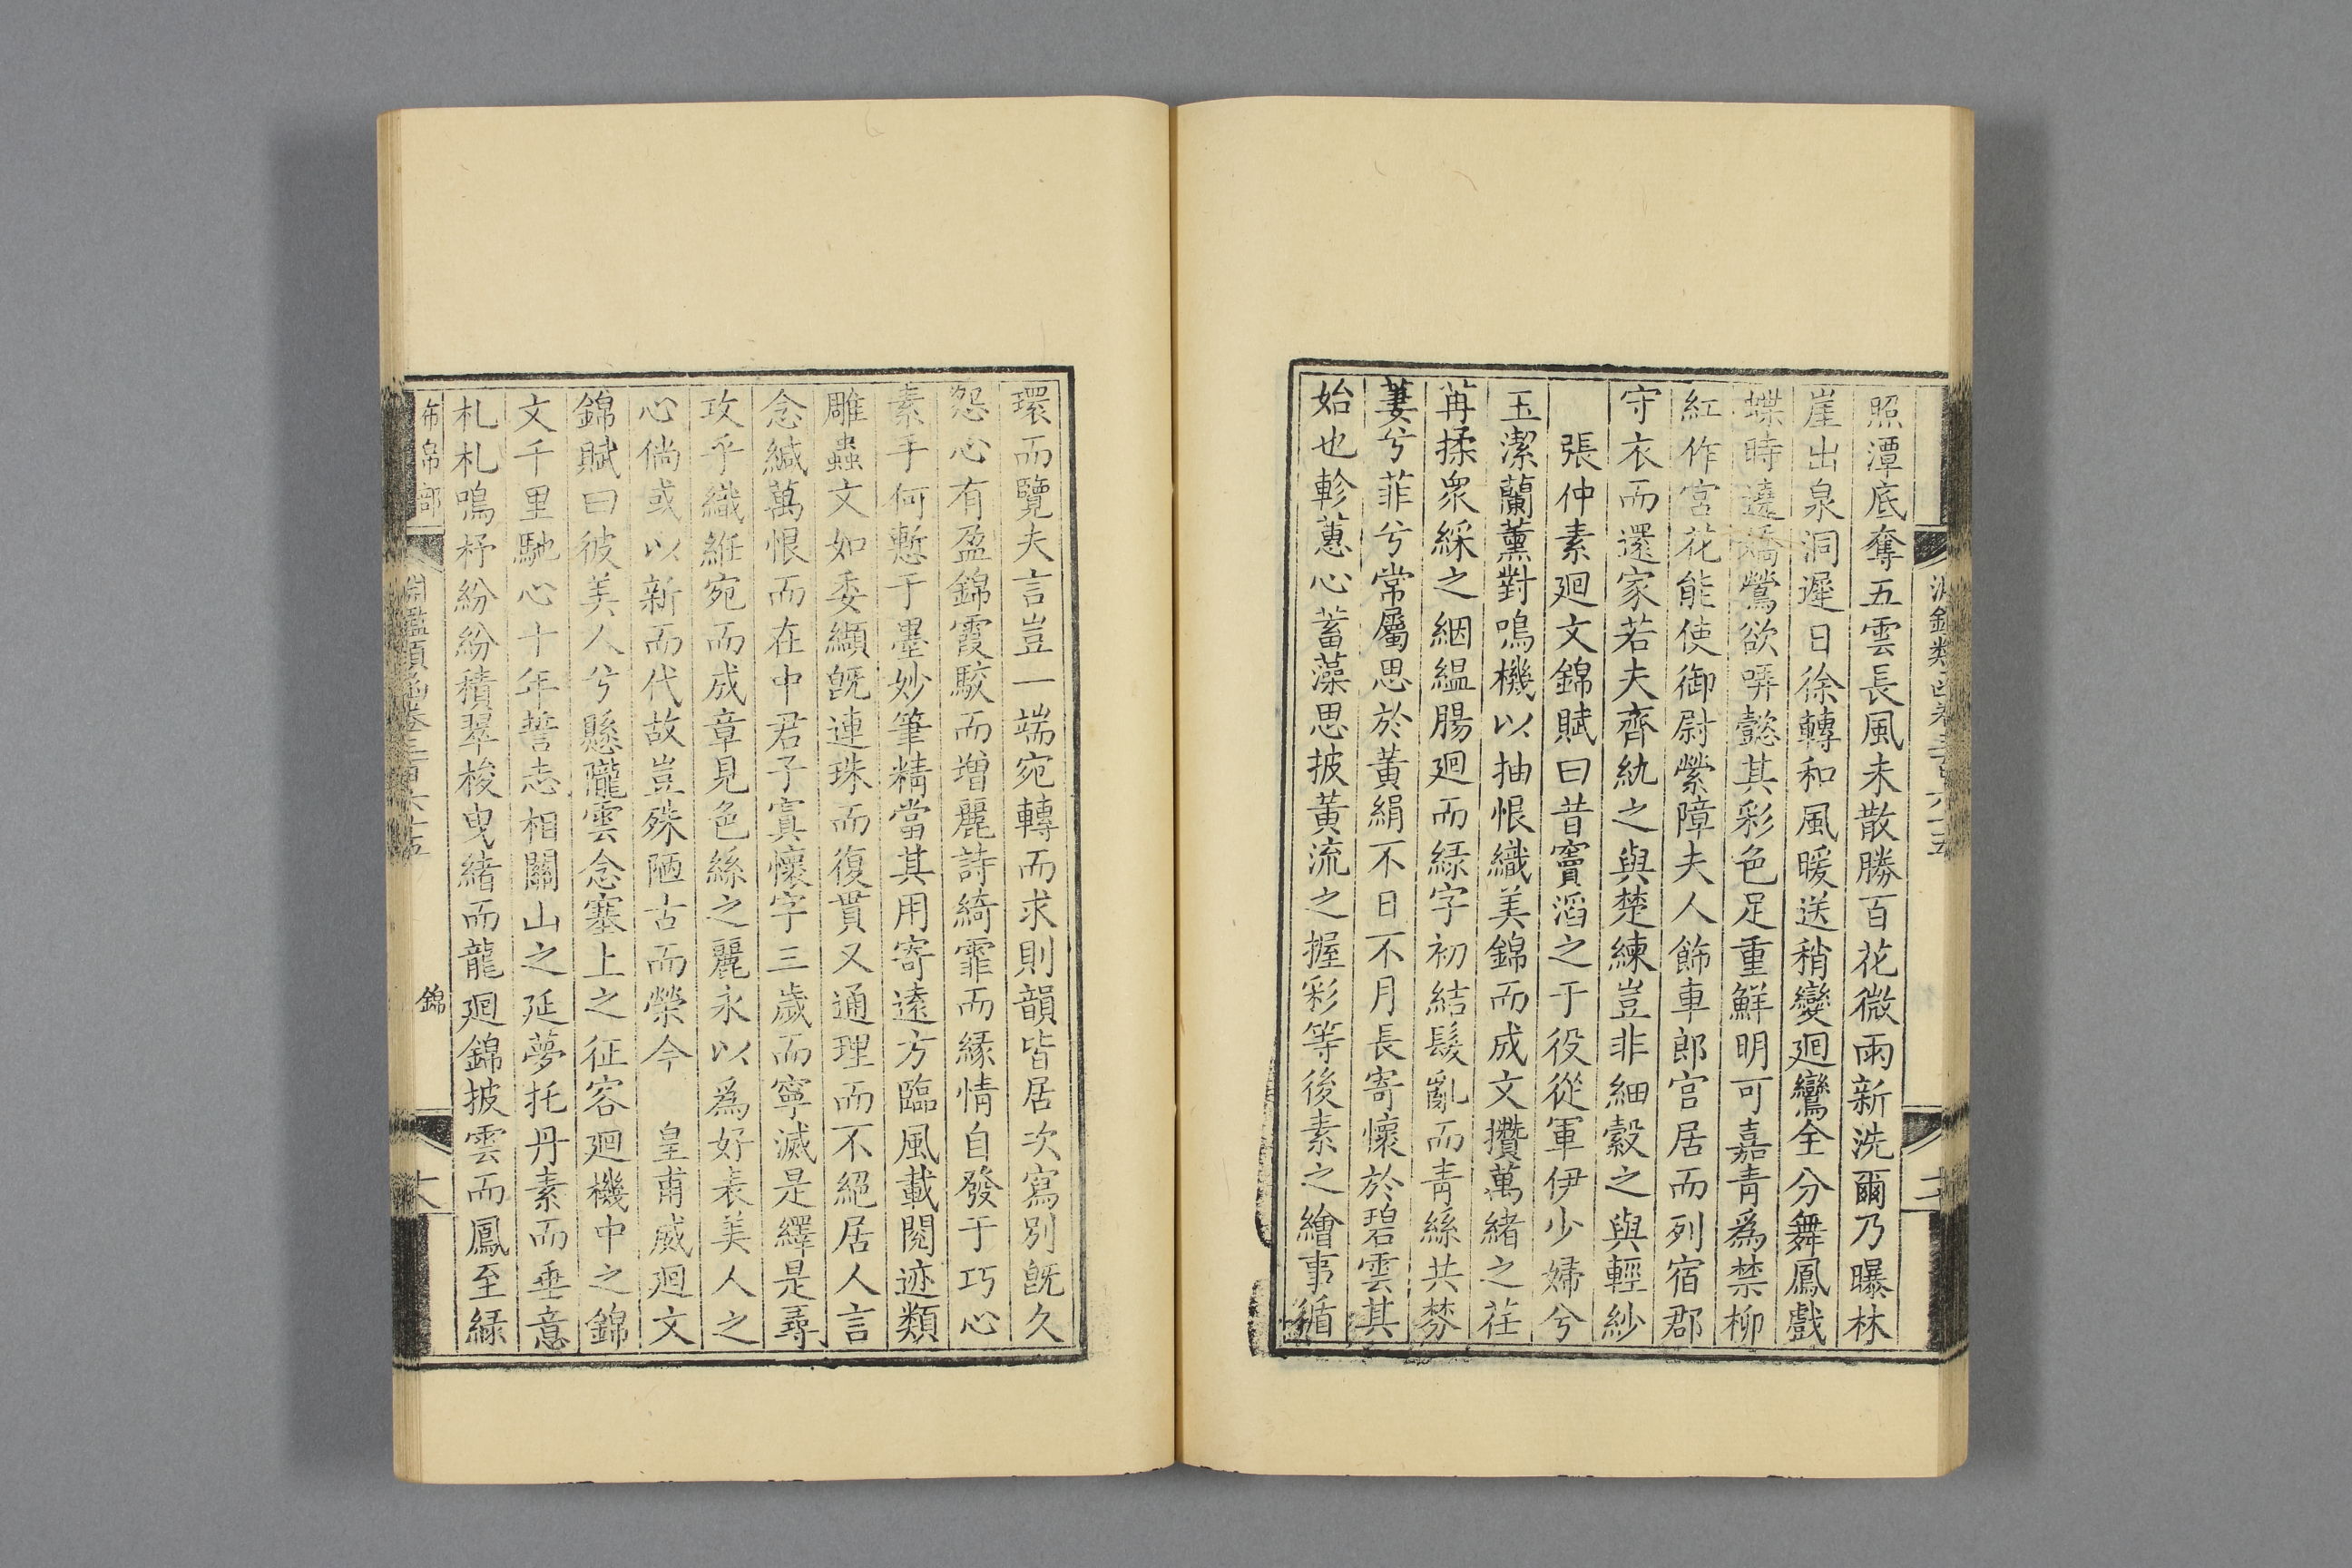 照潭底奪五雲長風未散勝百花微雨新洗爾乃曝林
崖出泉洞遲日徐轉和風暖送稍變廻鸞全分舞鳳戲
蝶時遶嬌鶯欲哢懿其彩色足重鮮明可嘉青爲禁柳
紅作宮花能使御尉縈障夫人飾車郎官居而列宿郡
守衣而還家若夫齊紈之與楚練豈非細縠之與輕紗
張仲素廻文錦賦曰昔竇滔之于役從軍伊少婦兮
玉潔蘭薰對鳴機以抽恨織美錦而成文攢萬緒之荏
苒揉衆綵之絪縕腸廻而綠字初結髮亂而青絲共棼
萋兮菲兮常屬思於黃絹不日不月長寄懷於碧雲其
始也軫蕙心蓄藻思披黃流之握彩等後素之繪事循
環而覽夫言豈一端宛轉而求則韻皆居次寫別旣久
怨心有盈錦霞駮而增麗詩綺霏而緣情自發于巧心
素手何慙于墨妙筆精當其用寄遠方臨風載閱迹類
雕蟲文如委纈旣連珠而復貫又通理而不絕居人言
念緘萬恨而在中君子寘懷字三歲而寧滅是繹是尋
攻乎織紝宛而成章見色絲之麗永以爲好表美人之
心倘或以新而代故豈殊陋古而榮今 皇甫威廻文
錦賦曰彼美人兮懸隴雲念塞上之征客廻機中之錦
文千里馳心十年誓志相關山之延夢托丹素而垂意
札札鳴杼紛紛積翠梭曳緒而龍廻錦披雲而鳳至綠
布帛部
淵鑑類函卷三百六十五
錦